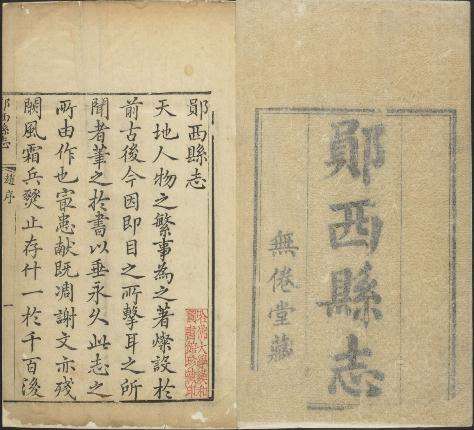 鄖西縣志
無倦堂藏
鄖西縣志
天地人物之繁事為之著燦設於
前古後今因即目之所擊耳之所
聞者筆之於書以垂永久此志之
所由作也甯患献既凋謝文亦残
闕風霜兵燹止存什一於千百後
鄖西縣志
趙序
一
哈佛大學漢和
圖書館珍藏印